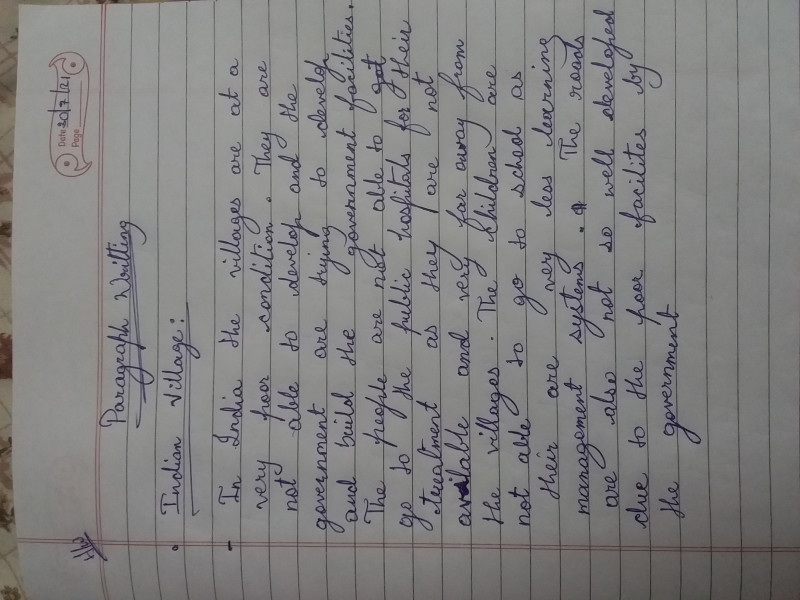 Date 20/7/21
Page
H/W
Paragraph Writting
• Indian Village:
- In India the villages are at a
very poor condition. They are
not able to develop and the
government are trying to develop
and build the government facilities.
The people are not able to got
go to the public hospitals for their
treatment as they are not
available and very far away from
the villages. The children are
not able to go to school as
their are very less learning
management systems. The roads
are also not so well developed
due to the poor facilites by
the government